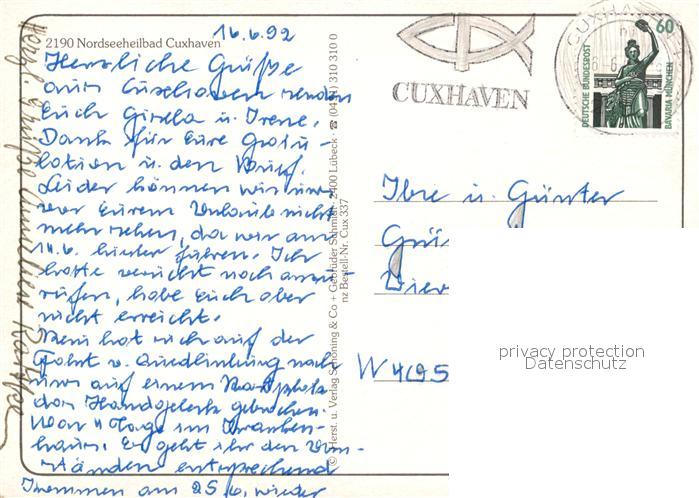 16.6.92
2190 Nordseeheilbad Cuxhaven
Herzliche Grüße
aus Cuxhaven senden
Euch Gisela u. Irene.
Dank für Eure Gratu-
lation u. den Brief.
Leider können wir uns
vor Eurem Urlaub nicht
mehr sehen, da wir am
14.6. hierher fuhren. Ich
hatte versucht noch anzu-
rufen, habe Euch aber
nicht erreicht.
hat sich auf der
Fahrt v. Quedlinburg nach
uns auf einem Rastplatz
das Handgelenk gebrochen.
War 4 Tage im Kranken-
haus. Es geht ihr den Um-
ständen entsprechend
kommen am 25.6. wieder
Herzl. Grüße
© Herst. u. Verlag Schöning & Co + Gebrüder Schmidt, 2400 Lübeck
310 310 0
nz Bestell-Nr. Cux 337
CUXHAVEN
CUXHAVEN
60
DEUTSCHE BUNDESPOST
BAVARIA MÜNCHEN
u. Günter
W 4195
privacy protection
Datenschutz